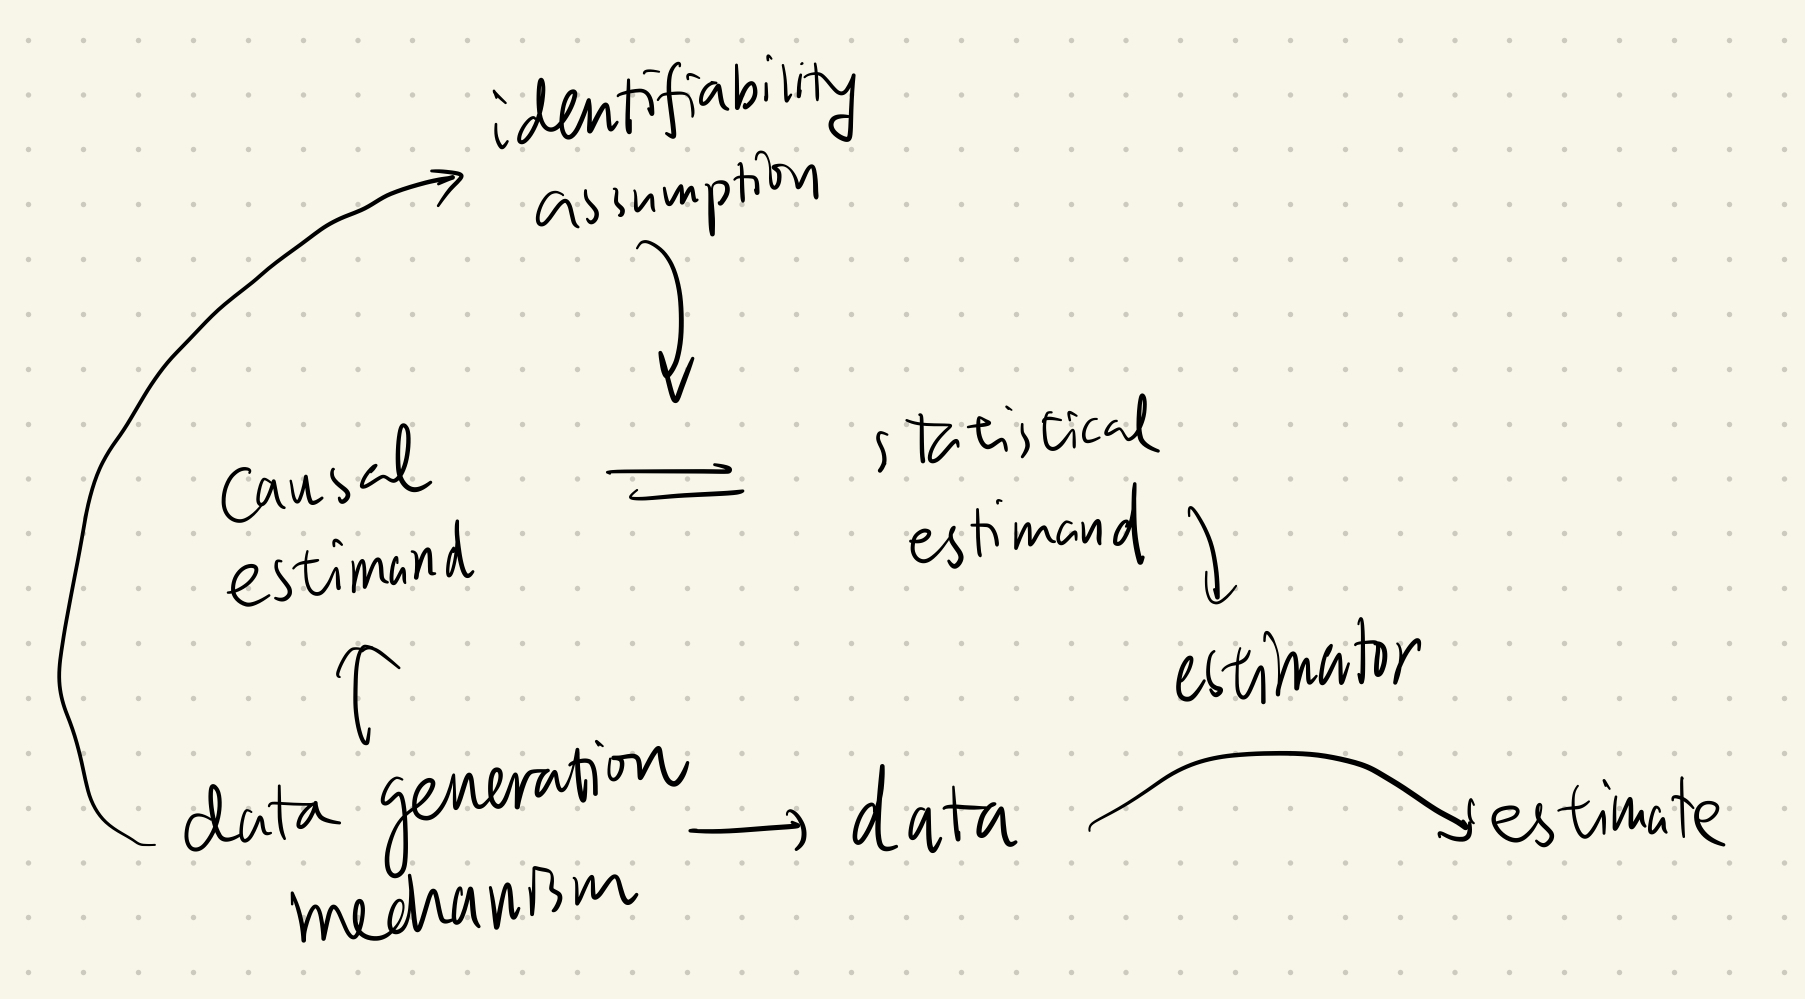 identifiability
assumption
causal
estimand
=
statistical
estimand
estimator
data generation
mechanism
data
estimate